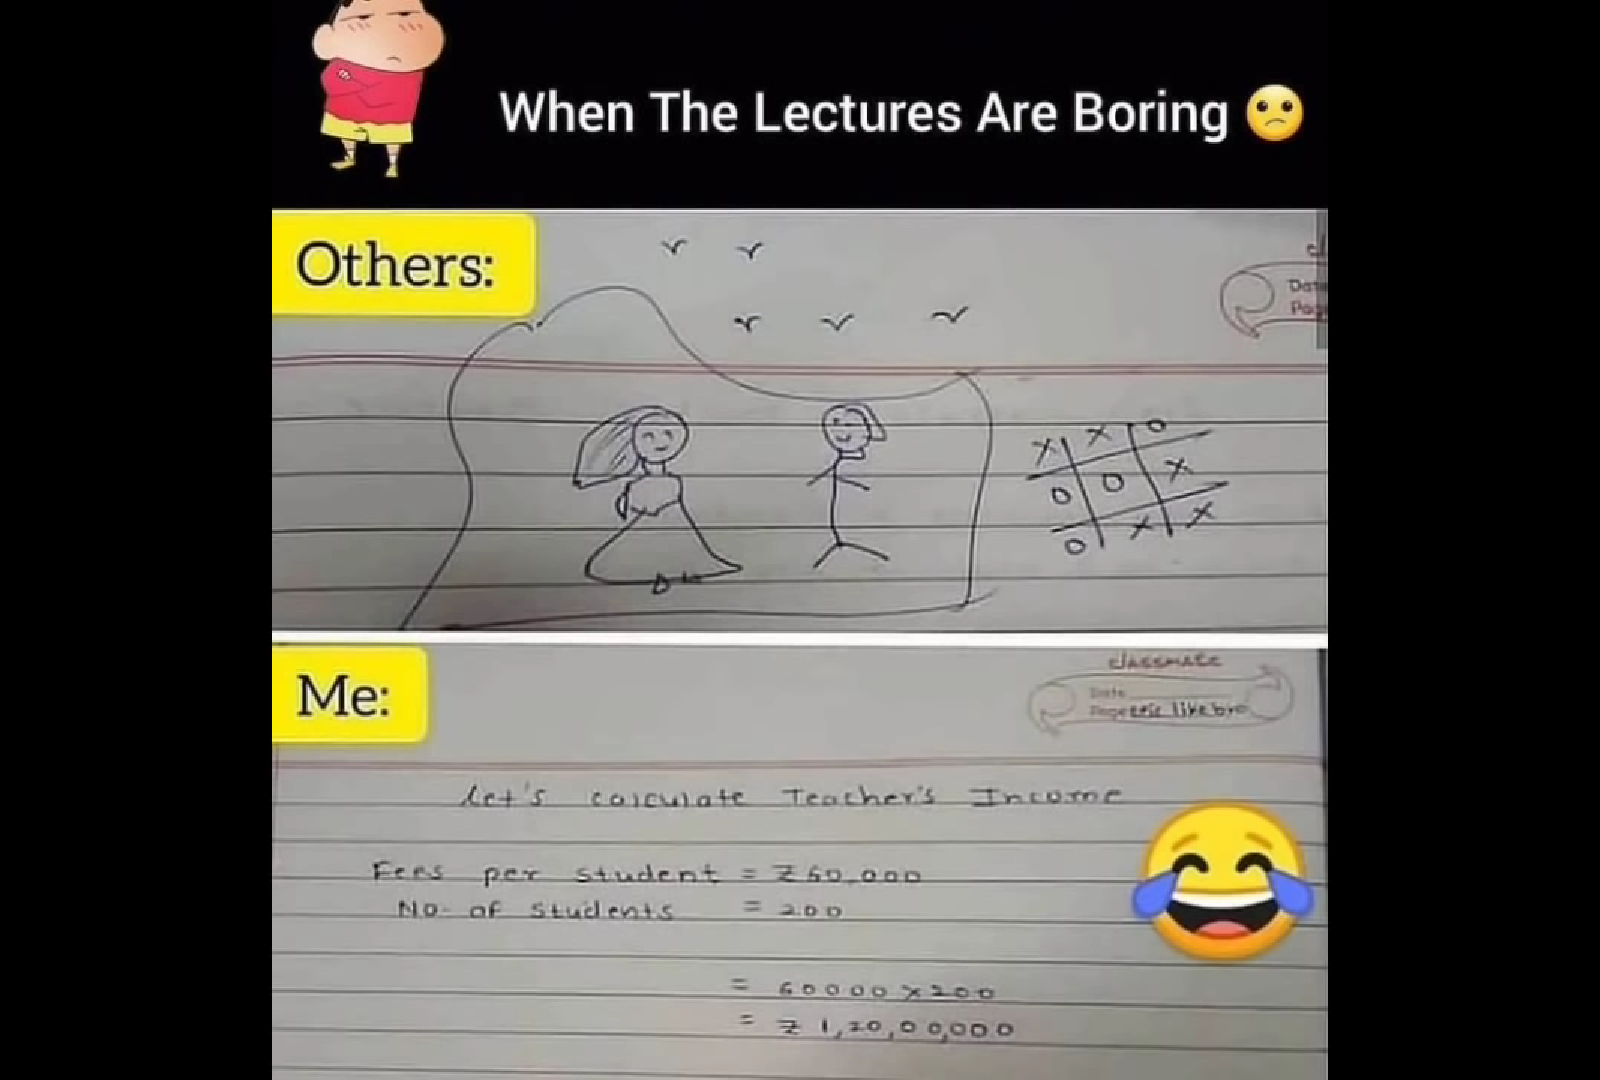 When The Lectures Are Boring 🙁
Others:
Date
Pag
X X O
O O X
O X X
Me:
classmate
Date
Page like bro
Let's calculate Teacher's Income
Fees per student = ₹60,000
No. of students = 200
= 60000 x 200
= ₹ 1,20,00,000